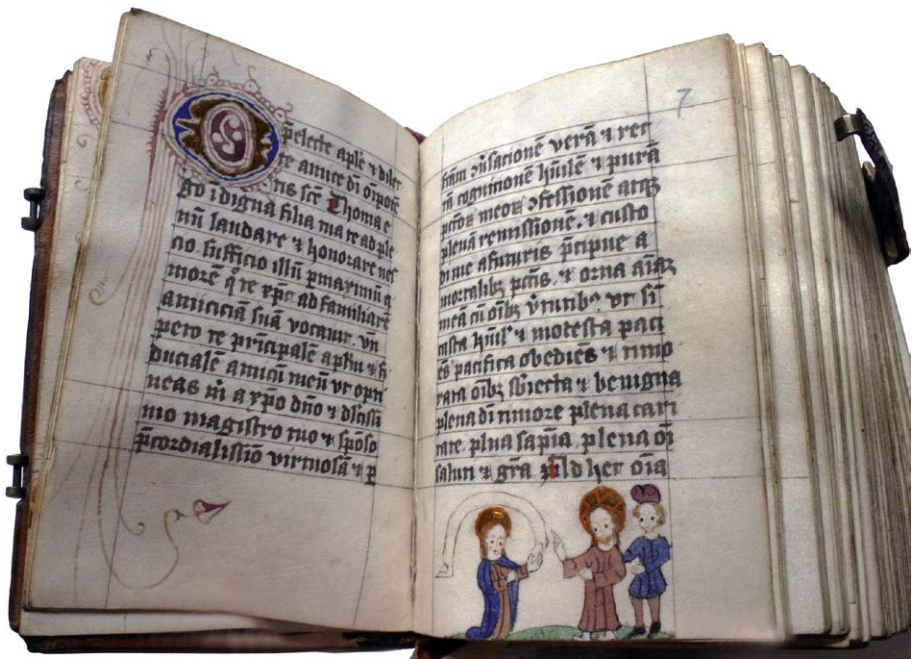 O p̄electe aplē ⁊ dilec
te amice di oīpotē
tis scē Thoma e
go īdigna filia ma te ad ple
nū laudare ⁊ honorare nes
cio sufficio illū pmaximū a
morē q̊ te xp̄c ad familiarē
amiciciā suā vocauit. vn̄
peto te prīcipalē aplm̄ ⁊ fi
ducialē amicū meū vt opti
neas m̄ a xp̄o dn̄o ⁊ dlc̄issi
mo magistro tuo ⁊ spōso
p̄cordialissīo virtuosā ⁊ p
7
ɔ̄usacionē verā ⁊ rec
tā cognitionē hūilē ⁊ purā
pctōꝝ meoꝝ ɔfessionē atqꝫ
plenā remissionē. ⁊ custo
di me a futuris p̄cipue a
mortalibꝫ pctīs. ⁊ orna aīaꝫ
meā cū oībꝫ v̄tutibꝰ vt sī
casta hūil' ⁊ motesta paci
ēs pacifica obediēs ⁊ timo
rata oībꝫ sb̄iecta ⁊ benigna
plena di timore plena cari
tate. plīa sapīa. plena oī
salute ⁊ grā hec oīa